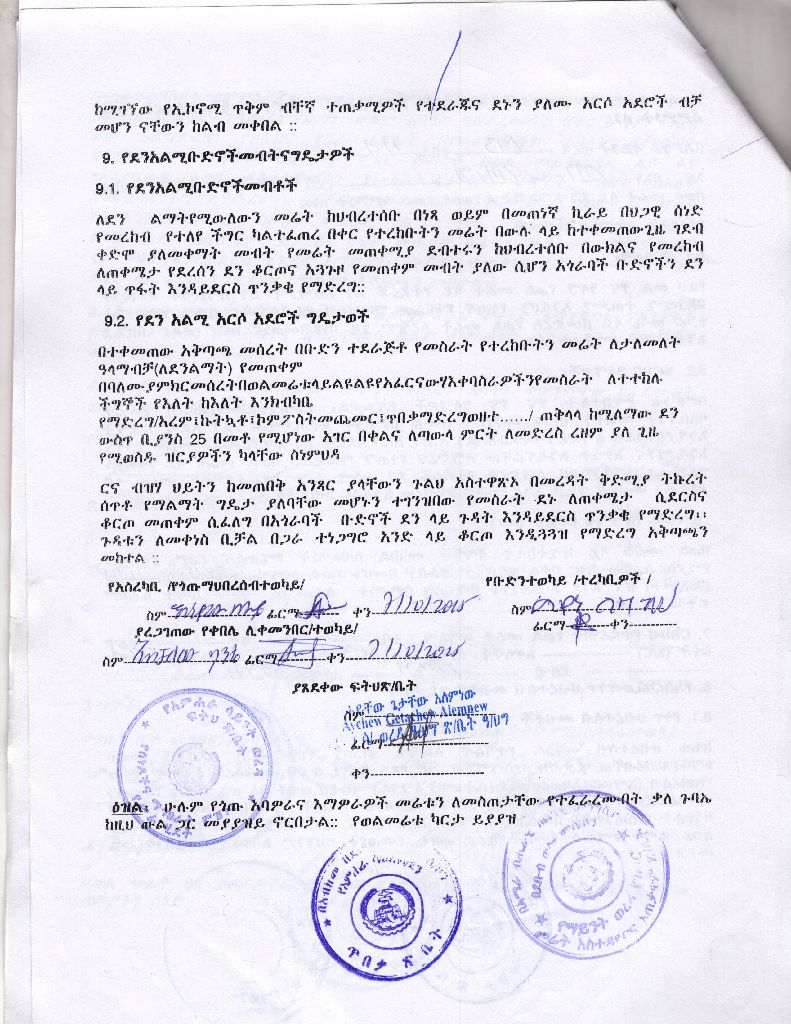 ከሚገኘው የኢኮኖሚ ጥቅም ብቸኛ ተጠቃሚዎች የተደራጁና ደኑን ያለሙ አርሶ አደሮች ብቻ
መሆን ናቸውን ከልብ መቀበል ::
9. የደንአልሚቡድኖችመብትናግዴታዎች
9.1. የደንአልሚቡድኖችመብቶች
ለደን ልማትየሚውለውን መሬት ከህብረተሰቡ በነጻ ወይም በመጠነኛ ኪራይ በህጋዊ ሰነድ
የመረከብ የተለየ ችግር ካልተፈጠረ በቀር የተረከቡትን መሬት በውሉ ላይ ከተቀመጠውጊዜ ገደብ
ቀድሞ ያለመቀማት መብት የመሬት መጠቀሚያ ደብተሩን ከህብረተሰቡ በውክልና የመረከብ
ለጠቀሜታ የደረሰን ደን ቆርጦና አጓጉዞ የመጠቀም መብት ያለው ሲሆን አጎራባች ቡድኖችን ደን
ላይ ጥፋት እንዳይደርስ ጥንቃቄ የማድረግ::
9.2. የደን አልሚ አርሶ አደሮች ግዴታወች
በተቀመጠው አቅጣጫ መሰረት በቡድን ተደራጅቶ የመስራት የተረከቡትን መሬት ለታለመለት
ዓላማብቻ(ለደንልማት) የመጠቀም
በባለሙያምክርመሰረትበወልመሬቱላይልዩልዩየአፈርናውሃእቀባስራዎችንየመስራት ለተተከሉ
ችግኞች የእለት ከእለት እንክብካቤ
የማድረግ/አረም፣ኩትኳቶ፣ኮምፖስትመጨመር፣ጥበቃማድረግወዘተ....../ ጠቅላላ ከሚለማው ደን
ውስጥ ቢያንስ 25 በመቶ የሚሆነው አገር በቀልና ለጣውላ ምርት ለመድረስ ረዘም ያለ ጊዜ
የሚወስዱ ዝርያዎችን ካላቸው ስነምህዳ
ርና ብዝሃ ህይትን ከመጠበቅ አንጻር ያላቸውን ጉልህ አስተዋጽኦ በመረዳት ቅድሚያ ትኩረት
ሰጥቶ የማልማት ግዴታ ያለባቸው መሆኑን ተገንዝበው የመስራት ደኑ ለጠቀሜታ ሲደርስና
ቆርጦ መጠቀም ሲፈለግ በአጎራባች ቡድኖች ደን ላይ ጉዳት እንዳይደርስ ጥንቃቄ የማድረግ፡፡
ጉዳቱን ለመቀነስ ቢቻል በጋራ ተነጋግሮ አንድ ላይ ቆርጦ እንዲጓጓዝ የማድረግ አቅጣጫን
መከተል ::
የአስረካቢ /የጎጡማህበረሰብተወካይ/ የቡድንተወካይ /ተረካቢዎች /
ስም ፊርማ ቀን 7/10/2015 ስም
ያረጋገጠው የቀበሌ ሊቀመንበር/ተወካይ/ ፊርማ ቀን
ስም ፊርማ ቀን 7/10/2015
ያጸደቀው ፍትህጽ/ቤት
ስም
አይቸው ጌታቸው አለምነው
Aychew Getachew Alemnew
ፊርማ
ቀን
ዕዝል፡ ሁሉም የጎጡ እባዎራና እማዎራዎች መሬቱን ለመስጠታቸው የተፈራረሙበት ቃለ ጉባኤ
ከዚህ ውል ጋር መያያዝይ ኖርበታል:: የወልመሬቱ ካርታ ይያያዝ
ጥበቃ ጽ ቤት